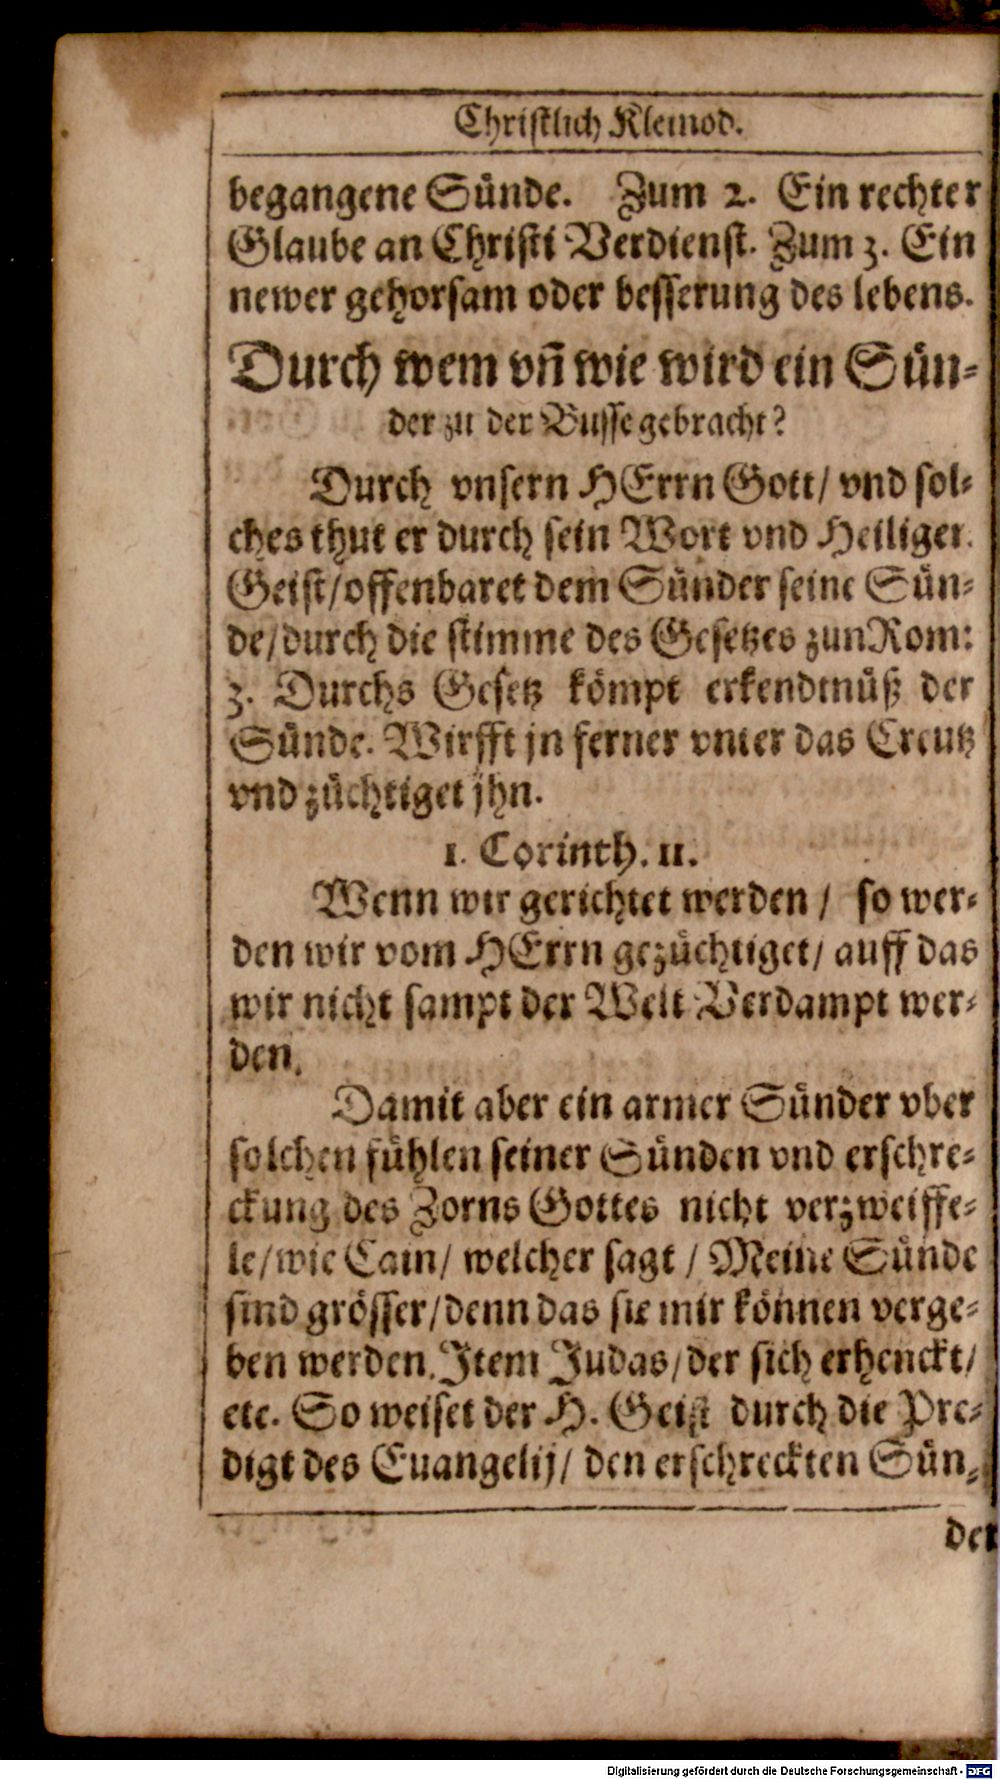 Christlich Kleinod.
begangene Sünde. Zum 2. Ein rechter
Glaube an Christi Verdienst. Zum 3. Ein
newer gehorsam oder besserung des lebens.
Durch wem vñ wie wird ein Sün-
der zu der Busse gebracht?
Durch vnsern HErrn Gott/ vnd sol-
ches thut er durch sein Wort vnd Heiliger
Geist/offenbaret dem Sünder seine Sün-
de/durch die stimme des Gesetzes zun Rom:
3. Durchs Gesetz kömpt erkendtnüß der
Sünde. Wirfft jn ferner vnter das Creutz
vnd züchtiget jhn.
1. Corinth. 11.
Wenn wir gerichtet werden / so wer-
den wir vom HErrn gezüchtiget/ auff das
wir nicht sampt der Welt Verdampt wer-
den.
Damit aber ein armer Sünder vber
solchen fühlen seiner Sünden vnd erschre-
ckung des Zorns Gottes nicht verzweiffe-
le/wie Cain/ welcher sagt / Meine Sünde
sind grösser/denn das sie mir können verge-
ben werden. Item Judas/der sich erhenckt/
etc. So weiset der H. Geist durch die Pre-
digt des Euangelij/ den erschreckten Sün-
der
Digitalisierung gefördert durch die Deutsche Forschungsgemeinschaft - DFG